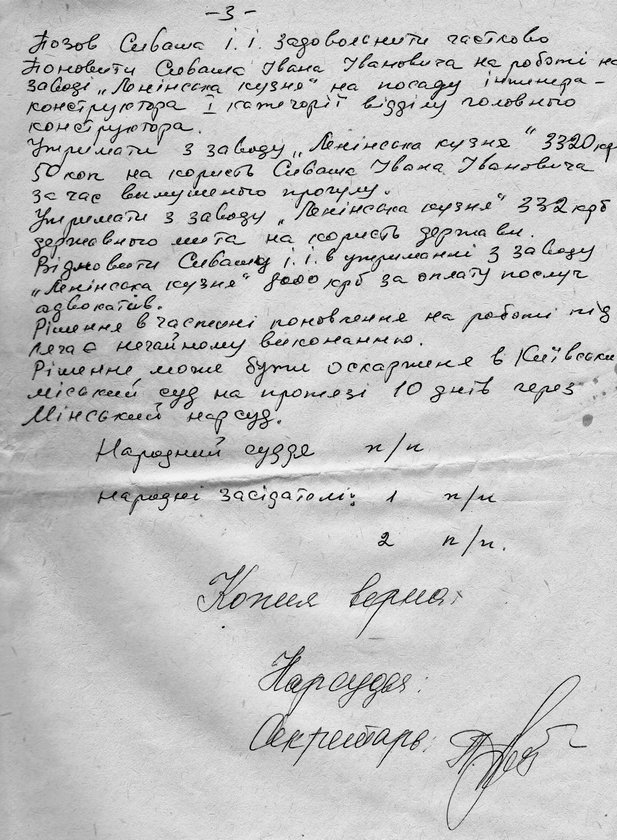 -3-
Позов Сиваша І.І. задовольнити частково
Поновити Сиваша Івана Івановича на роботі на
заводі „Ленінська кузня" на посаду інженера-
конструктора І категорії відділу головного
конструктора.
Утримати з заводу „Ленінська кузня" 3320 крб
50 коп на користь Сиваша Івана Івановича
за час вимушеного прогулу.
Утримати з заводу „Ленінська кузня" 332 крб
державного мита на користь держави.
Відмовити Сивашу І.І. в утриманні з заводу
„Ленінська кузня" крб за оплату послуг
адвокатів.
Рішення в частині поновлення на роботі під
лягає негайному виконанню.
Рішення може бути оскаржене в Київськи
міський суд на протязі 10 днів через
Мінський нарсуд.
Народний суддя п/п
Народні засідателі: 1 п/п
2 п/п.
Копия верна:
Нарсудья:
Секретарь: